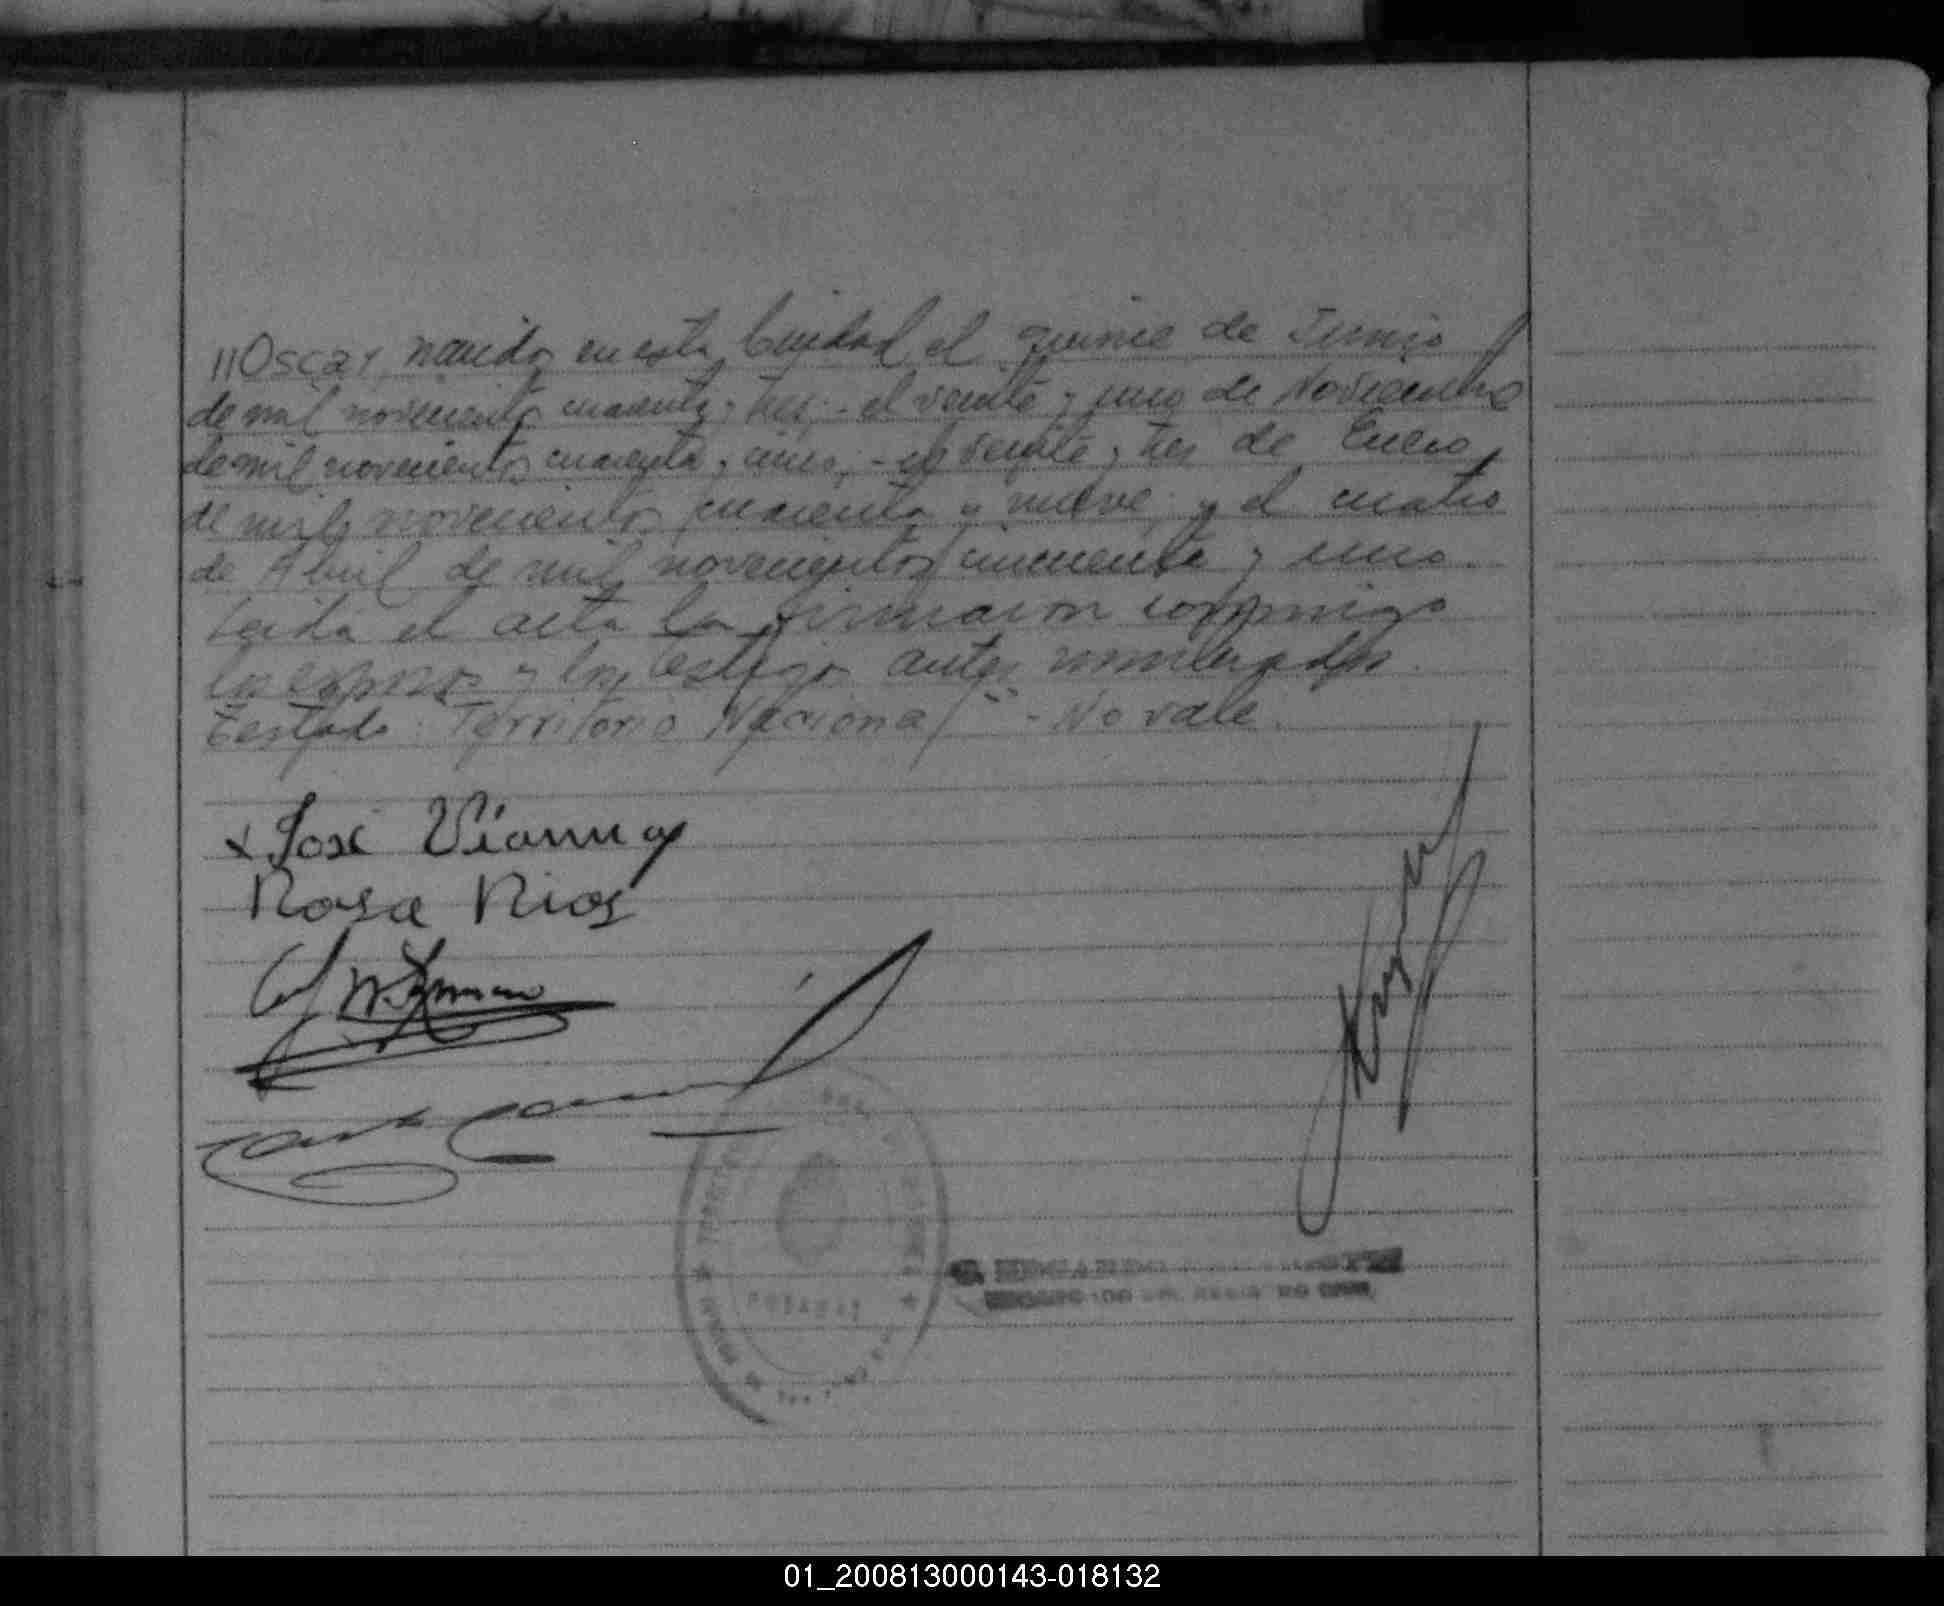 //Oscar, nacidos en esta Ciudad el quince de Junio
de mil novecientos cuarenta y tres; - el veinte y uno de Noviembre
de mil novecientos cuarenta y cinco; - el veinte y tres de Enero
de mil novecientos cuarenta y nueve; y el cuatro
de Abril de mil novecientos cincuenta y uno.
Leida el acta la firmaron conmigo
los esposos y los testigos antes nombrados.
Testado: Territorio Nacional" - No vale.
x José Vianna
Rosa Rios
POSADAS
01_200813000143-018132